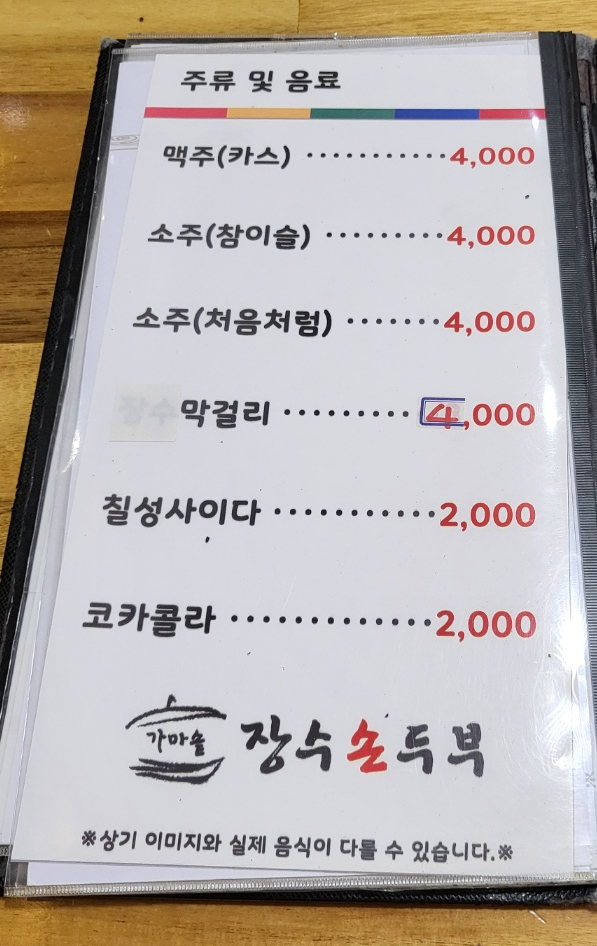 주류 및 음료
맥주(카스) ··········· 4,000
소주(참이슬) ········· 4,000
소주(처음처럼) ······· 4,000
장수막걸리 ········· 4,000
칠성사이다 ··········· 2,000
코카콜라 ············· 2,000
가마솥 장수손두부
※상기 이미지와 실제 음식이 다를 수 있습니다.※